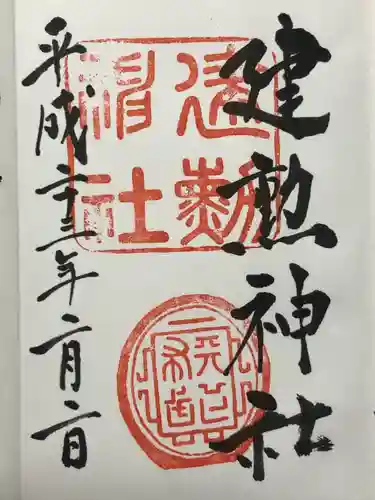 建勲神社
平成二十三年二月二日
建勲
神社